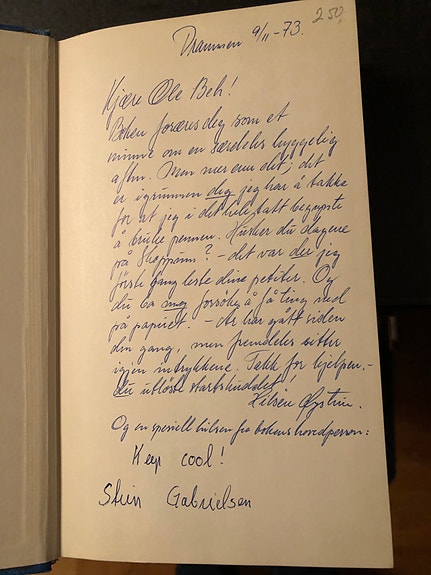 250,
Drammen 9/11-73.
Kjære Ole Beh!
Boken foræres deg som et
minne om en særdeles hyggelig
aften. Men mer enn det; det
er i grunnen deg jeg har å takke
for at jeg i det hele tatt begynte
å bruke pennen. Husker du dagene
på Skoppum? - det var der jeg
første gang leste dine petiter. Og
du ba meg forsøke å få ting ned
på papiret. - År har gått siden
den gang, men fremdeles sitter
igjen inntrykkene. Takk for hjelpen, -
du utløste startskuddet!
Hilsen Øystein.
Og en spesiell hilsen fra bokens hovedperson:
Keep cool!
Stein Gabrielsen